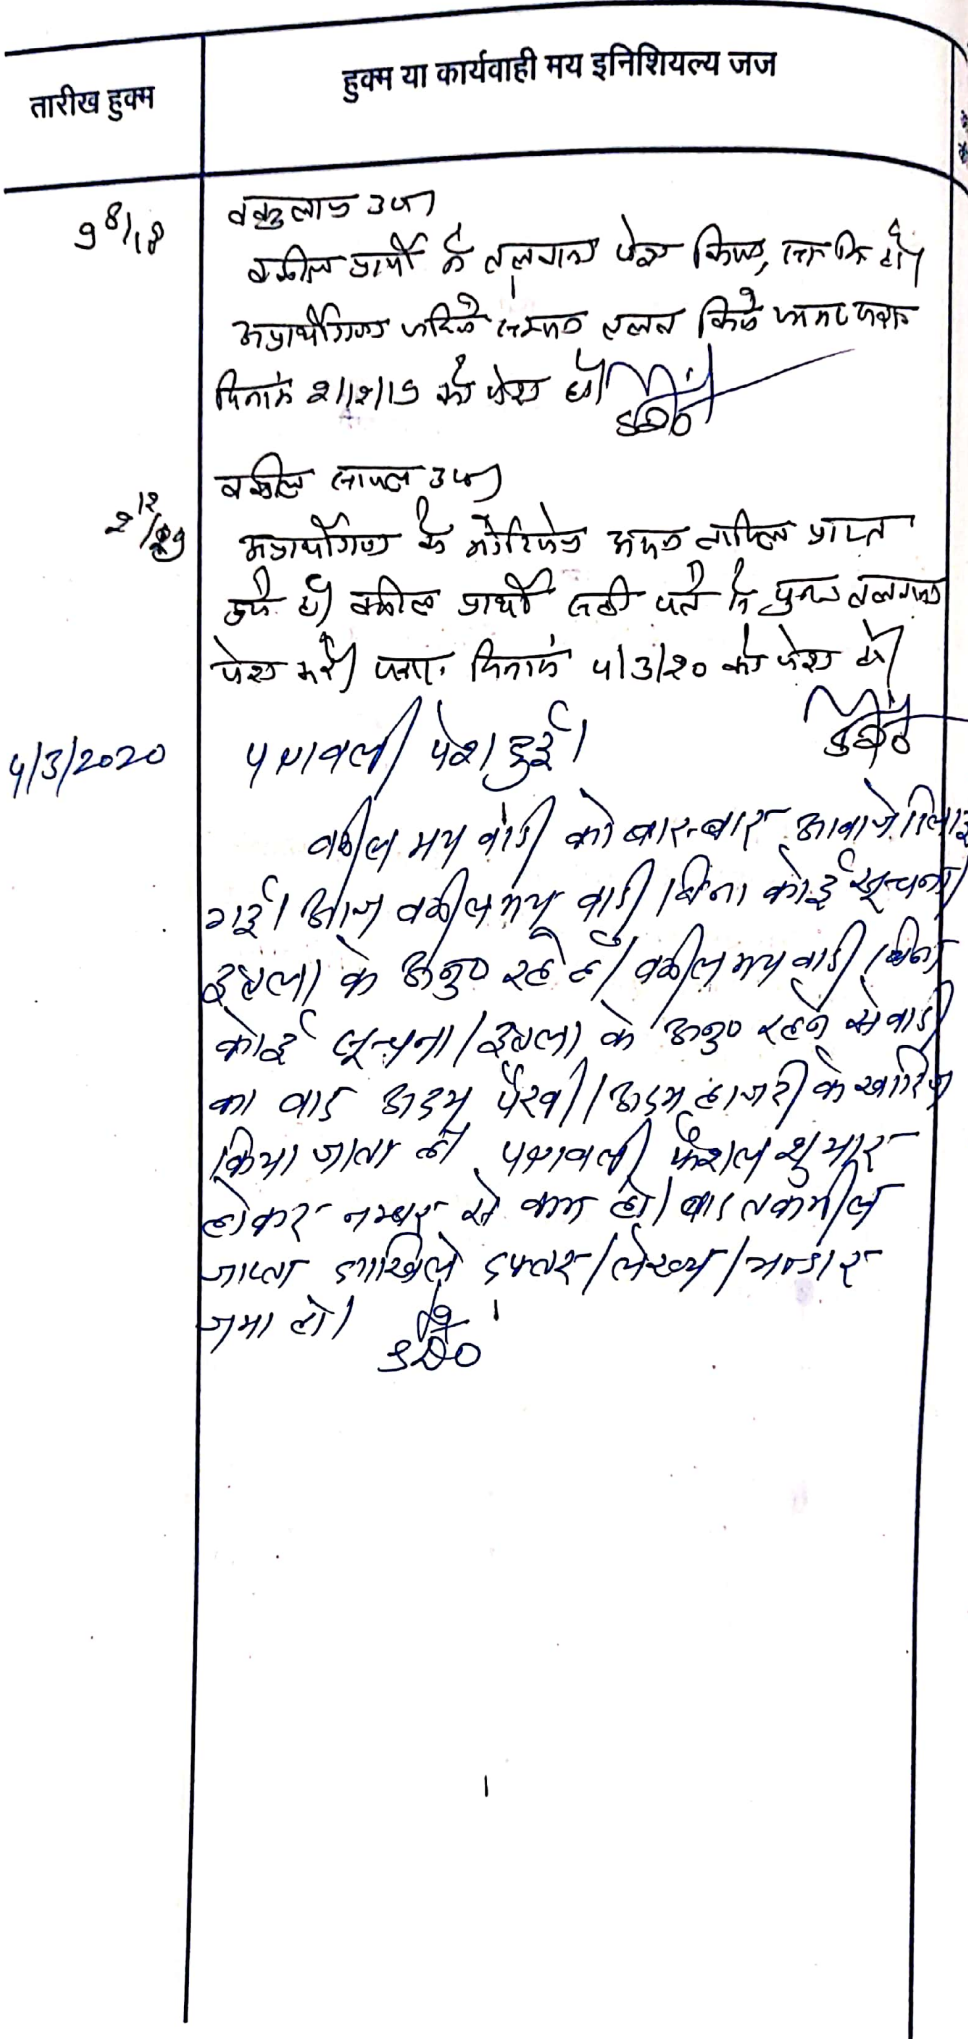 तारीख हुक्म
हुक्म या कार्यवाही मय इनिशियल्य जज
9 8/18
वकुलाय उप)
वकील प्रार्थी ने तलवाना पेश किया, हो।
अप्रार्थीगण जरिये सम्मन तलब किये
दिनांक 2/12/19 को पेश हो।
SDO
2 12/19
वकील उप)
अप्रार्थीगण के अदम तामिल प्राप्त
हुये हो) वकील प्रार्थी सही पते के पुनः तलवाना
पेश करे) पत्रा. दिनांक 4/3/20 को पेश हो)
SDO
4/3/2020
पत्रावली पेश हुई।
वकील मय वादी को बार-बार आवाजे दिलाई
गई। आज वकील मय वादी बिना कोई सूचना/
इत्तला के अनु० रहे है। वकील मय वादी बिना
कोई सूचना/इत्तला के अनु० रहने से वादी
का वाद अदम पैरवी/अदम हाजरी के खारिज
किया जाता है। पत्रावली फैशल शुमार
होकर नम्बर से कम हो। बाद तकमील
जाप्ता दाखिले दफ्तर/लेख्य/भण्डार
जमा हो।
SDO